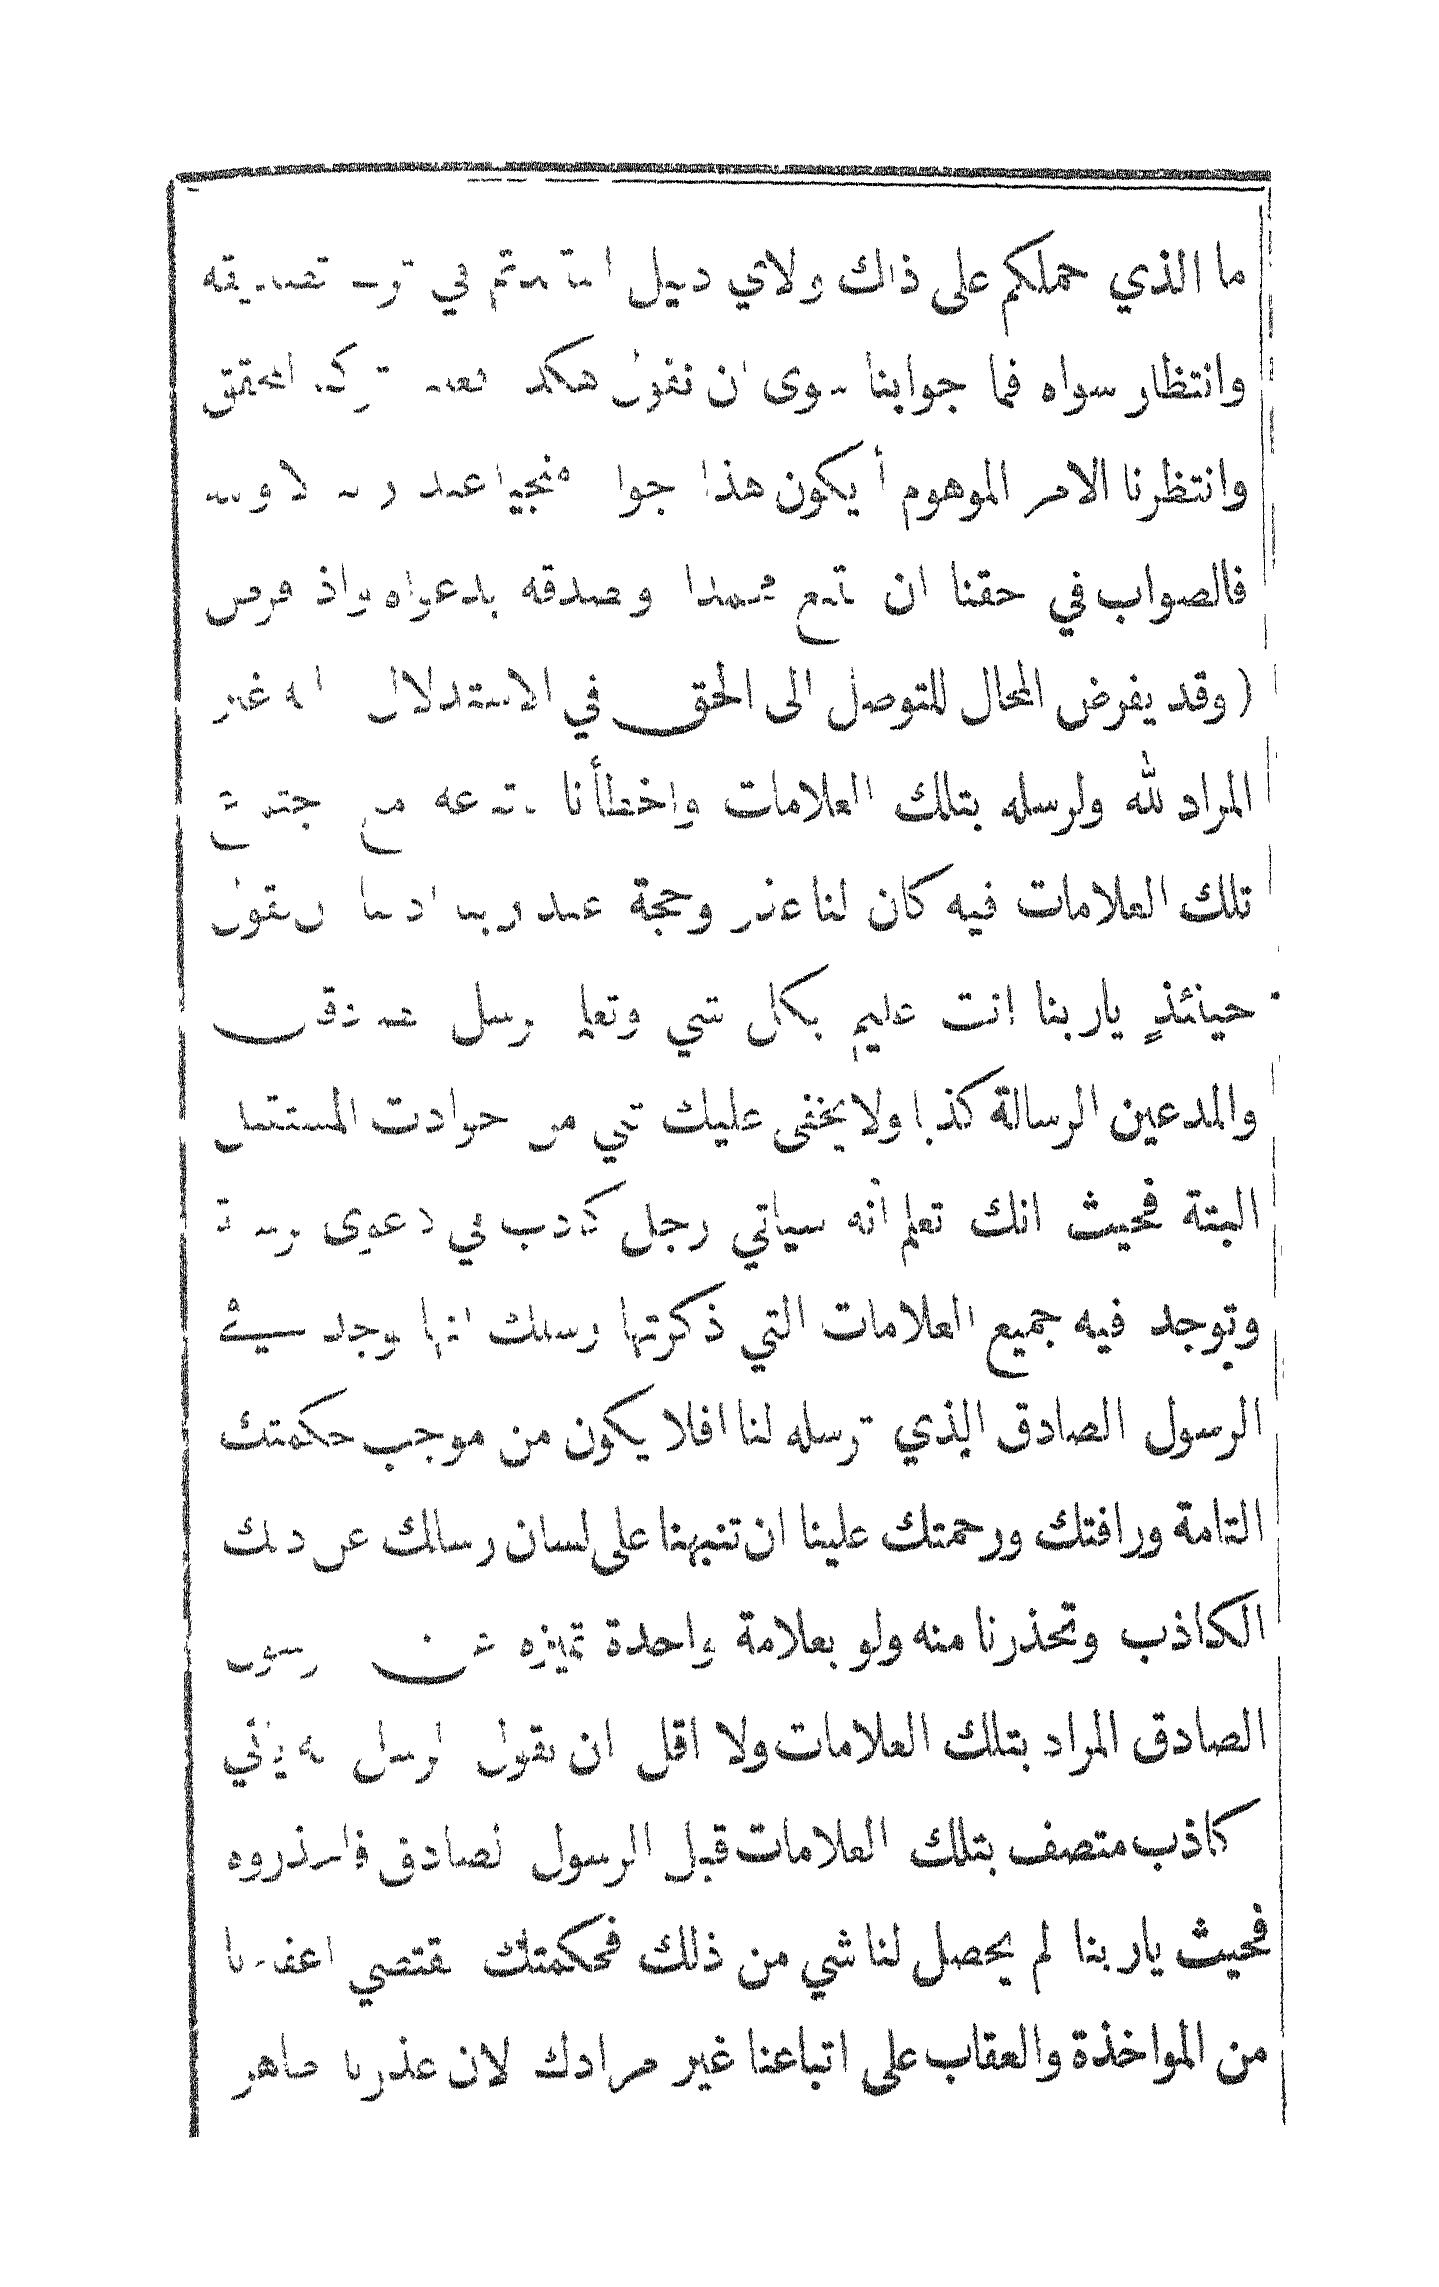 ما الذي حملكم على ذاك ولاي دليل استندتم في ترك تصديقه
وانتظار سواه فما جوابنا سوى ان نقول هكذا تركنا المحقق
وانتظرنا الامر الموهوم أيكون هذا جوابا منجيا عند ربنا لا والله
فالصواب في حقنا ان نتبع محمدا ونصدقه بدعواه واذا فرض
(وقد يفرض المحال للتوصل الى الحق في الاستدلال انه غير
المراد لله ولرسله بتلك العلامات واخطأنا باتباعه مع جتماع
تلك العلامات فيه كان لنا عذر وحجة عند ربنا اذ لنا ان نقول
حينئذٍ ياربنا انت عليم بكل شي وتعلم رسلك الصادقين
والمدعين الرسالة كذبا ولا يخفى عليك شي من حوادث المستقبل
البتة فحيث انك تعلم أنه سياتي رجل كاذب في دعوى رسالته
وتوجد فيه جميع العلامات التي ذكرتها رسلك انها توجد في
الرسول الصادق الذي ترسله لنا افلا يكون من موجب حكمتك
التامة ورافتك ورحمتك علينا ان تنبهنا على لسان رسالك عن ذلك
الكاذب وتحذرنا منه ولو بعلامة واحدة تميزه عن رسولك
الصادق المراد بتلك العلامات ولا اقل ان يقول الرسل انه ياتي
كاذب متصف بتلك العلامات قبل الرسول الصادق فاحذروه
فحيث ياربنا لم يحصل لنا شي من ذلك فحكمتك تقتضي اعفاءنا
من المواخذة والعقاب على اتباعنا غير مرادك لان عذرنا ظاهر